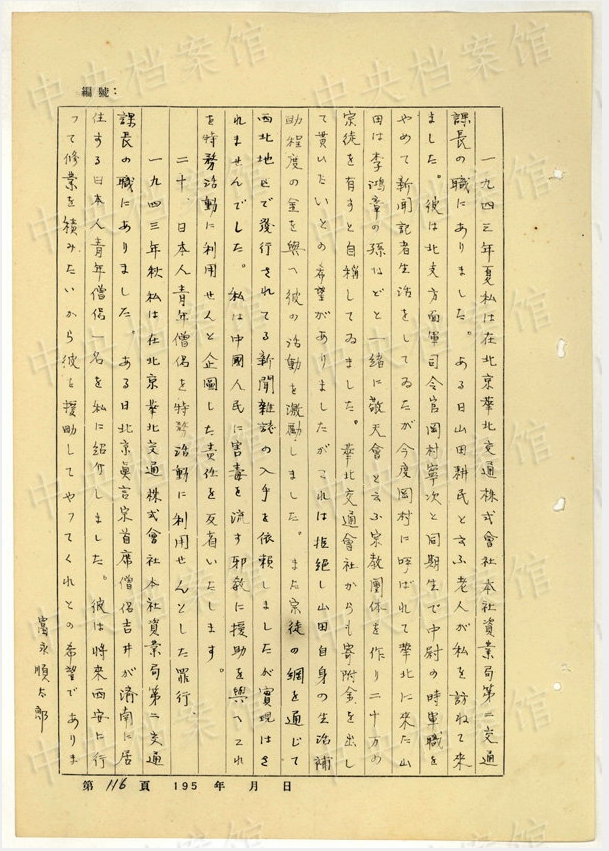 編號:
一九四三年夏私は在北京華北交通株式會社本社資業局第二交通
課長の職にありました。ある日山田耕民と云ふ老人が私を訪ねて来
ました。彼は北支方面軍司令官岡村寧次と同期生で中尉の時軍職を
やめて新聞記者生活をしてゐたが今度岡村に呼ばれて華北に来た山
田は李鴻章の孫などと一緒に敬天會と云ふ宗教團体を作り二十万の
宗徒を有すと自稱してゐました。華北交通會社からも寄附金を出し
て貰いたいとの希望がありましたがこれは拒絶し山田自身の生活補
助程度の金を與へ彼の活動を激励しました。また宗徒の網を通じて
西北地区で發行されてる新聞雜誌の入手を依頼しましたが實現はさ
れませんでした。私は中國人民に害毒を流す邪教に援助を與へこれ
を特務活動に利用せんと企圖した責任を反省いたします。
二十、日本人青年僧侶を特務活動に利用せんとした罪行、
一九四三年秋私は在北京華北交通株式會社本社資業局第二交通
課長の職にありました。ある日北京眞言宗首席僧侶吉井が濟南に居
住する日本人青年僧侶一名を私に紹介しました。彼は將来西安に行
つて修業を積みたいから彼を援助してやつてくれとの希望でありま
富永順太郎
第116頁 195 年 月 日
中央档案馆